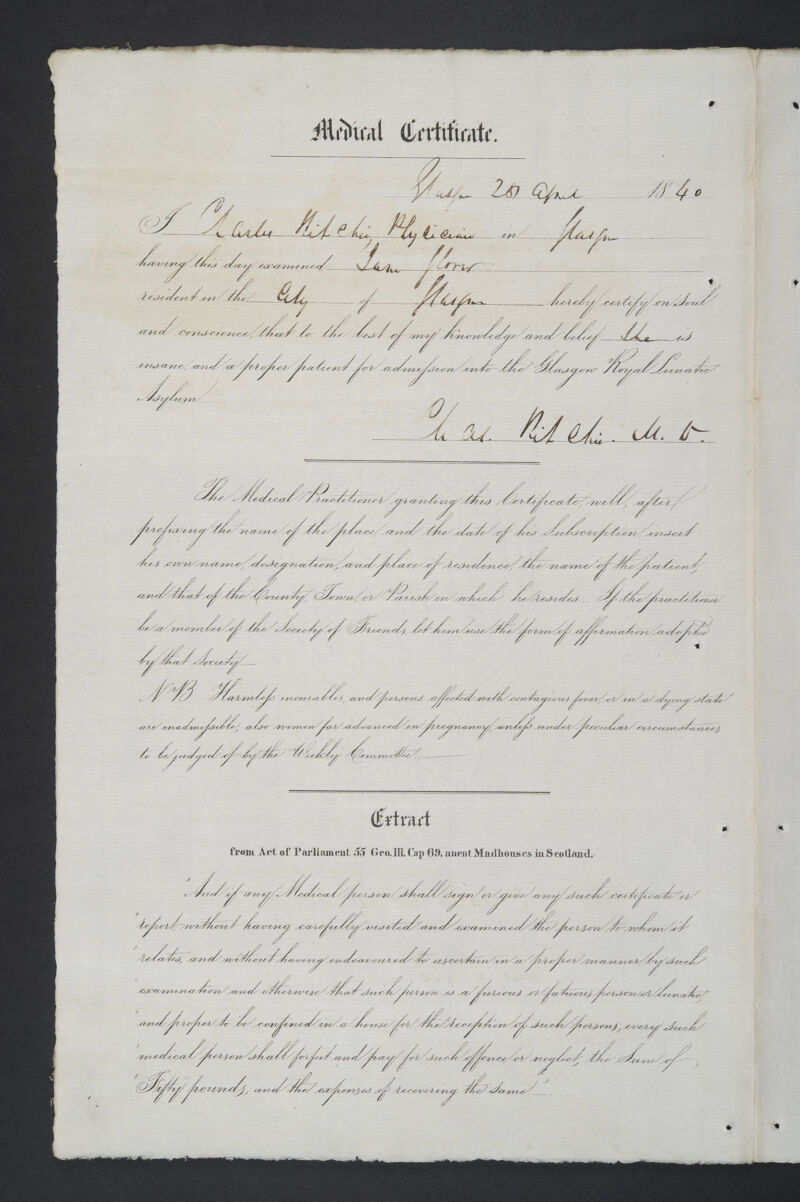 Medical Certificate.
Glasgow 28 April 1840
I Charles Ritchie, Physician in Glasgow
having this day examined Jane
resident in the City of Glasgow hereby certify on soul
and conscience, that to the best of my knowledge and belief She is
insane, and a proper patient for admission into the Glasgow Royal Lunatic
Asylum
Chas. Ritchie. M. D.
The Medical Practitioner granting this Certificate, will, after
prefixing the name of the place, and the date of his Subscription, insert
his own name, designation, and place of residence, the name of the patient,
and that of the County, Town, or Parish in which he resides. If the practitioner
be a member of the Society of Friends, let him use the form of affirmation adopted
by that Society.
N.B. Harmless incurables, and persons affected with contagious fever, or in a dying state
are inadmissible, also women far advanced in pregnancy, unless under peculiar circumstances,
to be judged of by the Weekly Committee
Extract
from Act of Parliament 55 Geo. III. Cap 69, anent Madhouses in Scotland.
"And if any Medical person shall sign or give any such certificate or
"report without having carefully visited and examined the person to whom it
"relates, and without having endeavoured to ascertain in a proper manner by such
"examination and otherwise that such person is a furious or fatuous person or lunatic,
"and proper to be confined in a house for the reception of such persons, every such
"medical person shall forfeit and pay for such offence or neglect, the Sum of
"Fifty pounds, and the expenses of recovering the same"